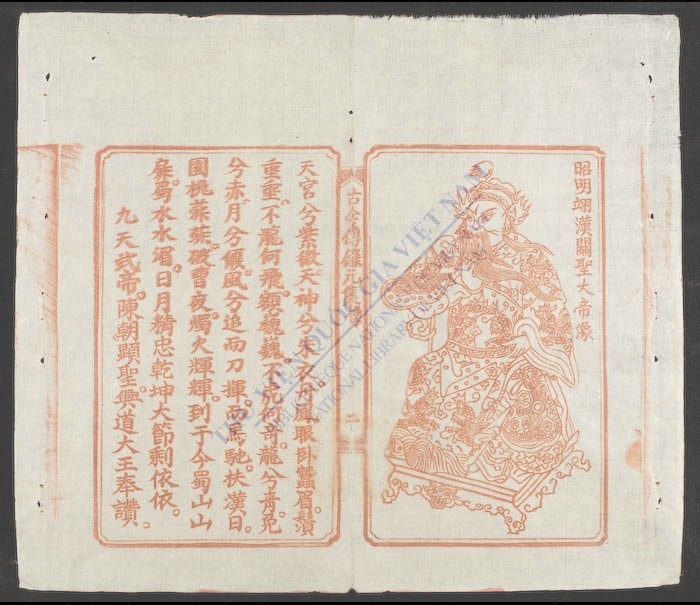 昭明翊漢關聖大帝像
古今傳錄
二
天宮兮紫微天神兮朱衣而鳳眼卧蠶眉。鬚
垂垂。不龍何飛。額巍巍。不虎何奇龍兮青。兔
兮赤。月兮偃。風兮追而刀揮而馬馳。扶漢日。
園桃菲菲。破曹夜。燭火輝輝。到于今蜀山山
靡。蜀水水湄。日月精忠乾坤大節剩依依。
九天武帝。陳朝顯聖。興道大王奉讚。
THƯ VIỆN QUỐC GIA VIỆT NAM
BIBLIOTHEQUE NATIONALE DU VIETNAM
NATIONAL LIBRARY OF VIETNAM